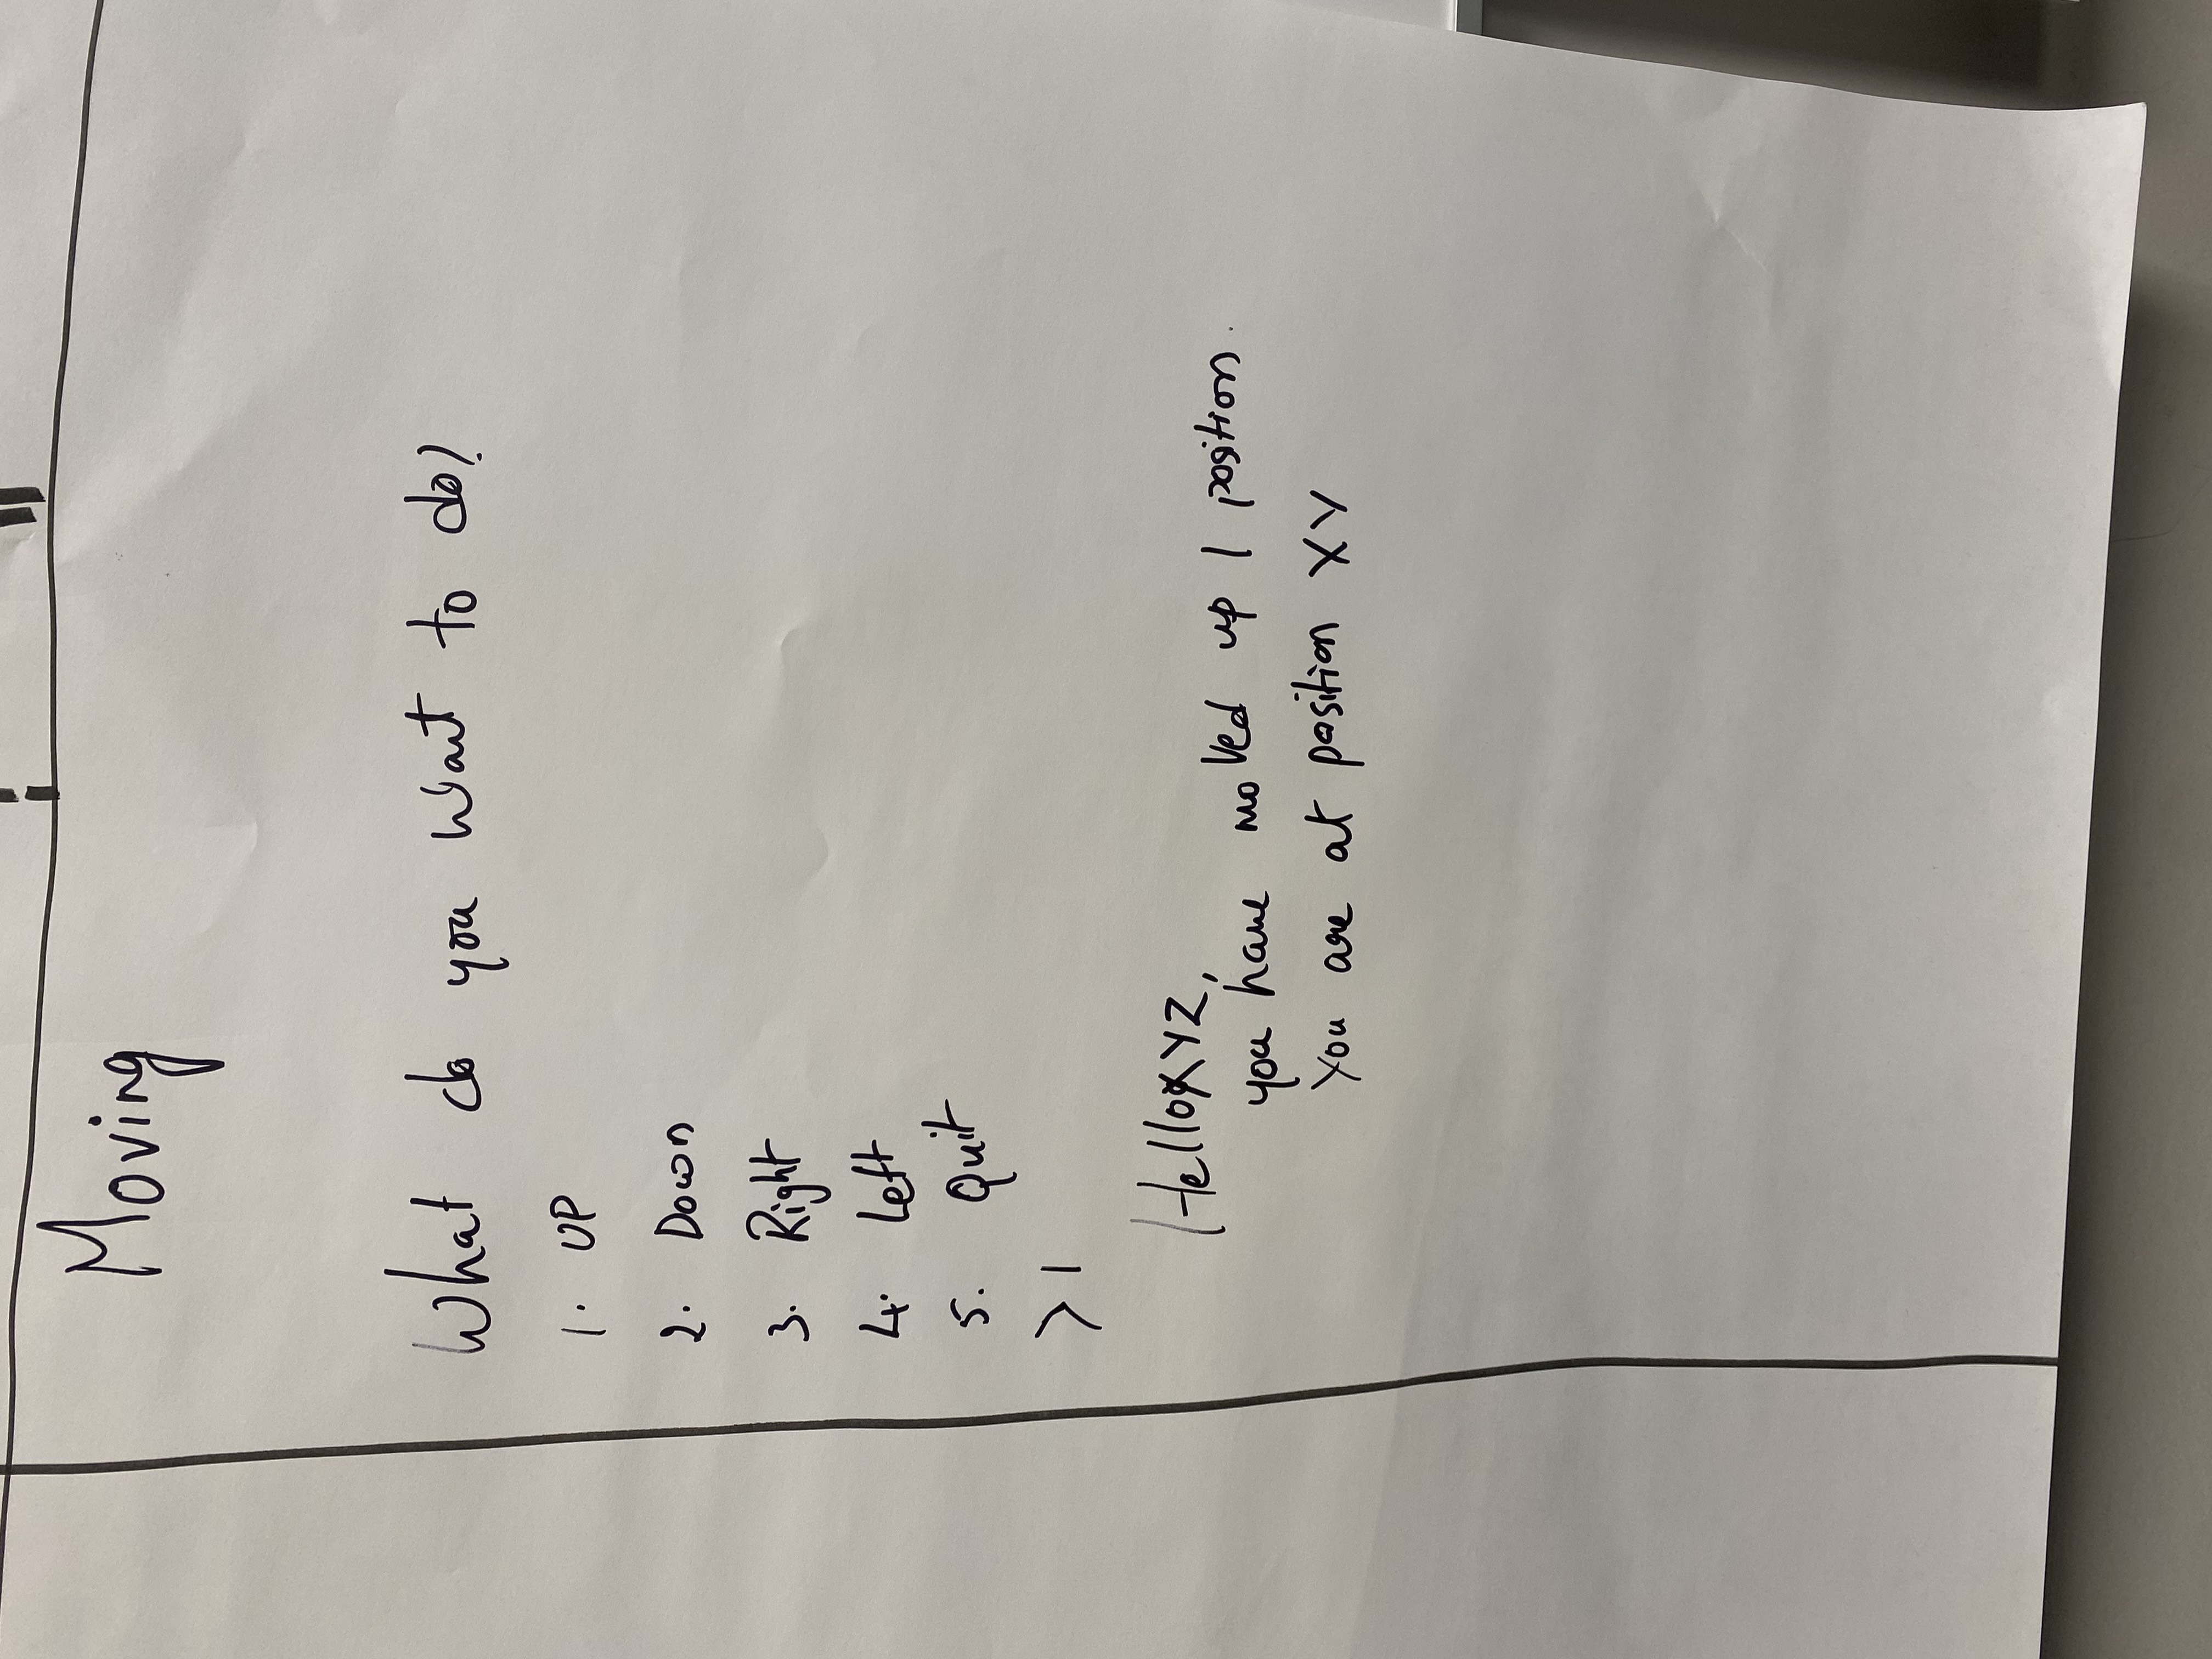 Moving
What do you want to do?
1. UP
2. Down
3. Right
4. Left
5. Quit
> 1
Hello XYZ,
you have moved up 1 position.
You are at position XY